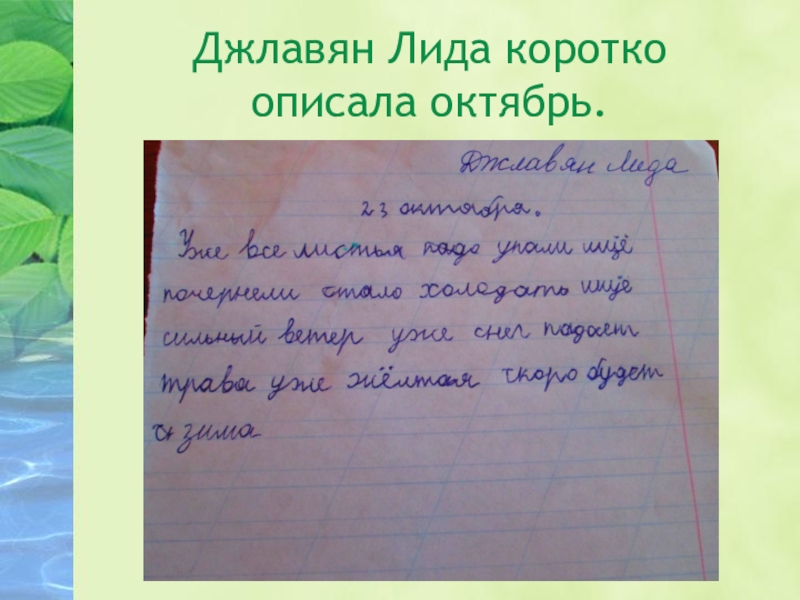 Джлавян Лида коротко
описала октябрь.
Джлавян Лида
23 октября.
Уже все листья падо упали ищё
почернели стало холодать ищё
сильный ветер уже снег падает
трава уже жёлтая скоро будет
зима